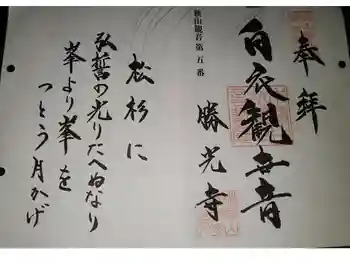 奉拝
白衣観世音
勝光寺
秩山観音第五番
松杉に
弘誓の光りたへぬなり
峯より峯を
つとう月かげ